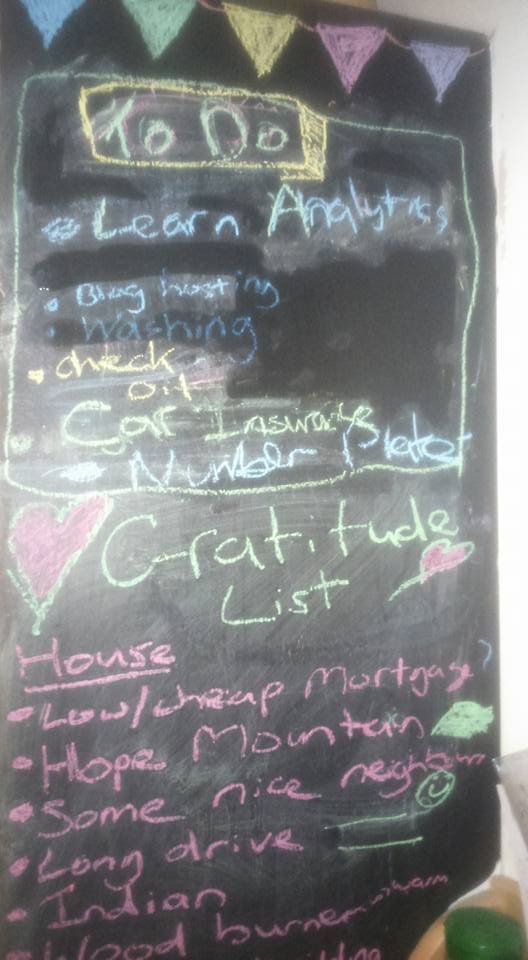 To Do
Learn Analytics
• Blog hosting
• Washing
• check
oil
Car Insurance
Number Plates
Gratitude
List
House
• Low/cheap Mortgage
• Hope Mountain
• Some nice neighbours
• Long drive
• Indian
• Wood burner warm